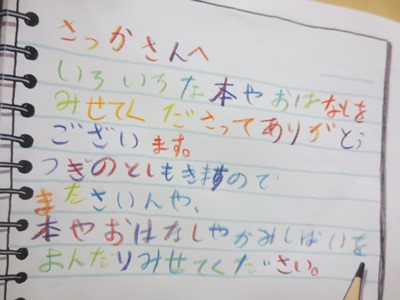 さっかさんへ
いろいろな本やおはなしを
みせてくださってありがとう
ございます。
つぎのとしもきますので
またさいんや、
本やおはなしやかみしばいを
よんだりみせてください。